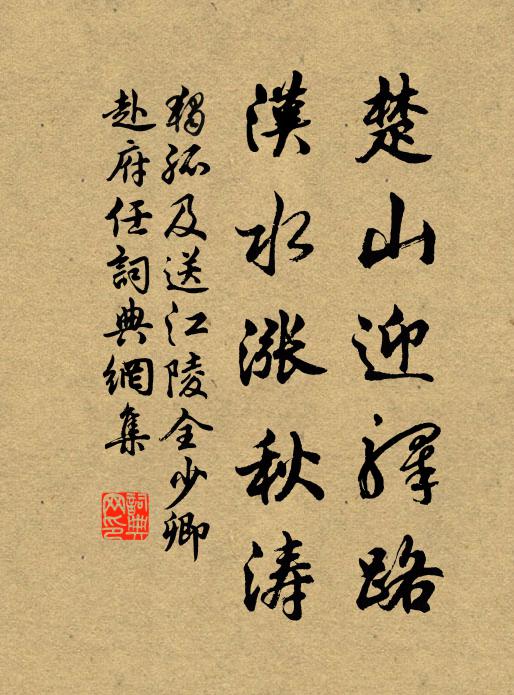 楚山迎驛路
漢水漲秋濤
獨孤及送江陵全少卿
赴府任詞典網集
詞典網印